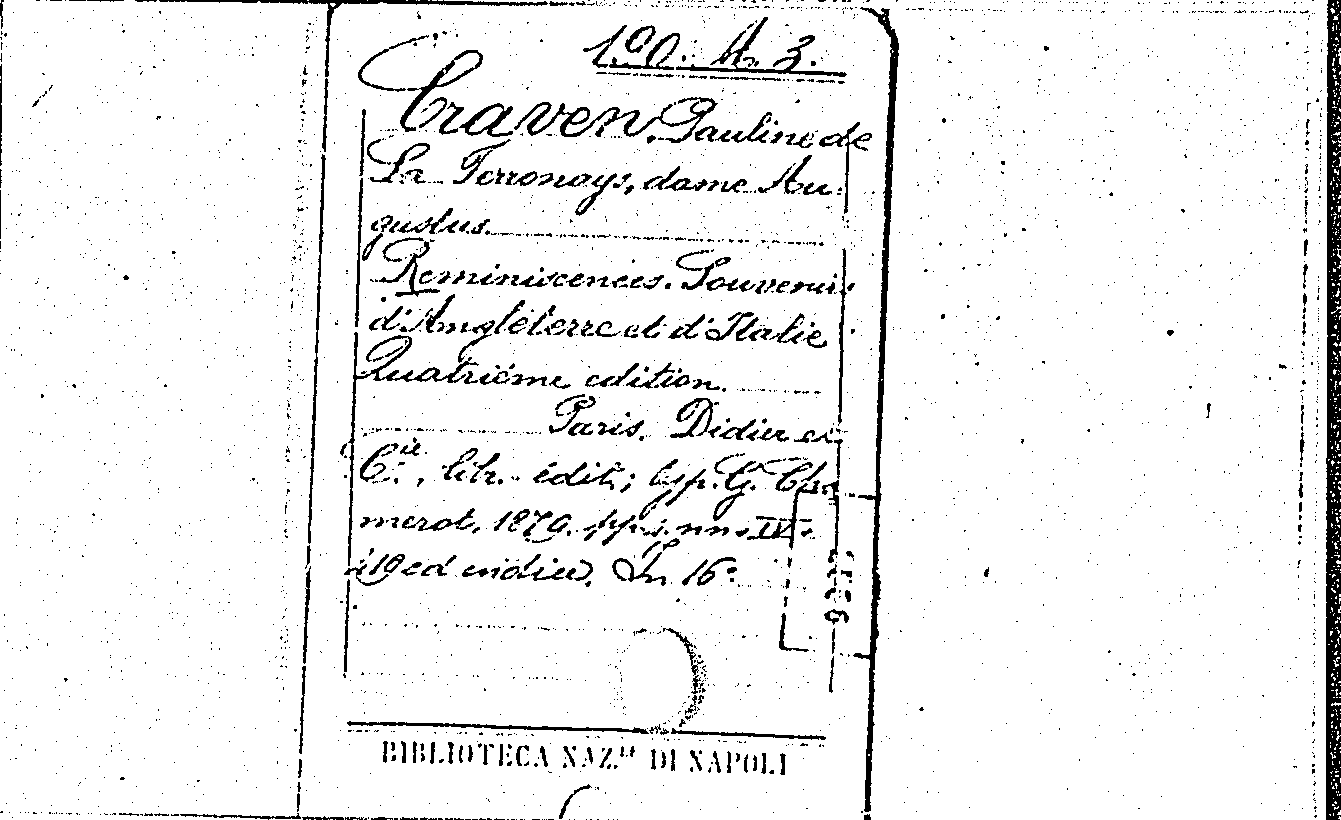 1.90. A. 3.
Craven, Pauline de
La Ferronays, dame Au
gustus.
Reminiscences. Souvenirs
d'Angleterre et d'Italie
Quatrième edition.
Paris. Didier et
C.ie, libr. édit; typ. G. Cha
merot. 1879. pp. nn. IV.
419 ed indice. In 16°
BIBLIOTECA NAZ.LE DI NAPOLI